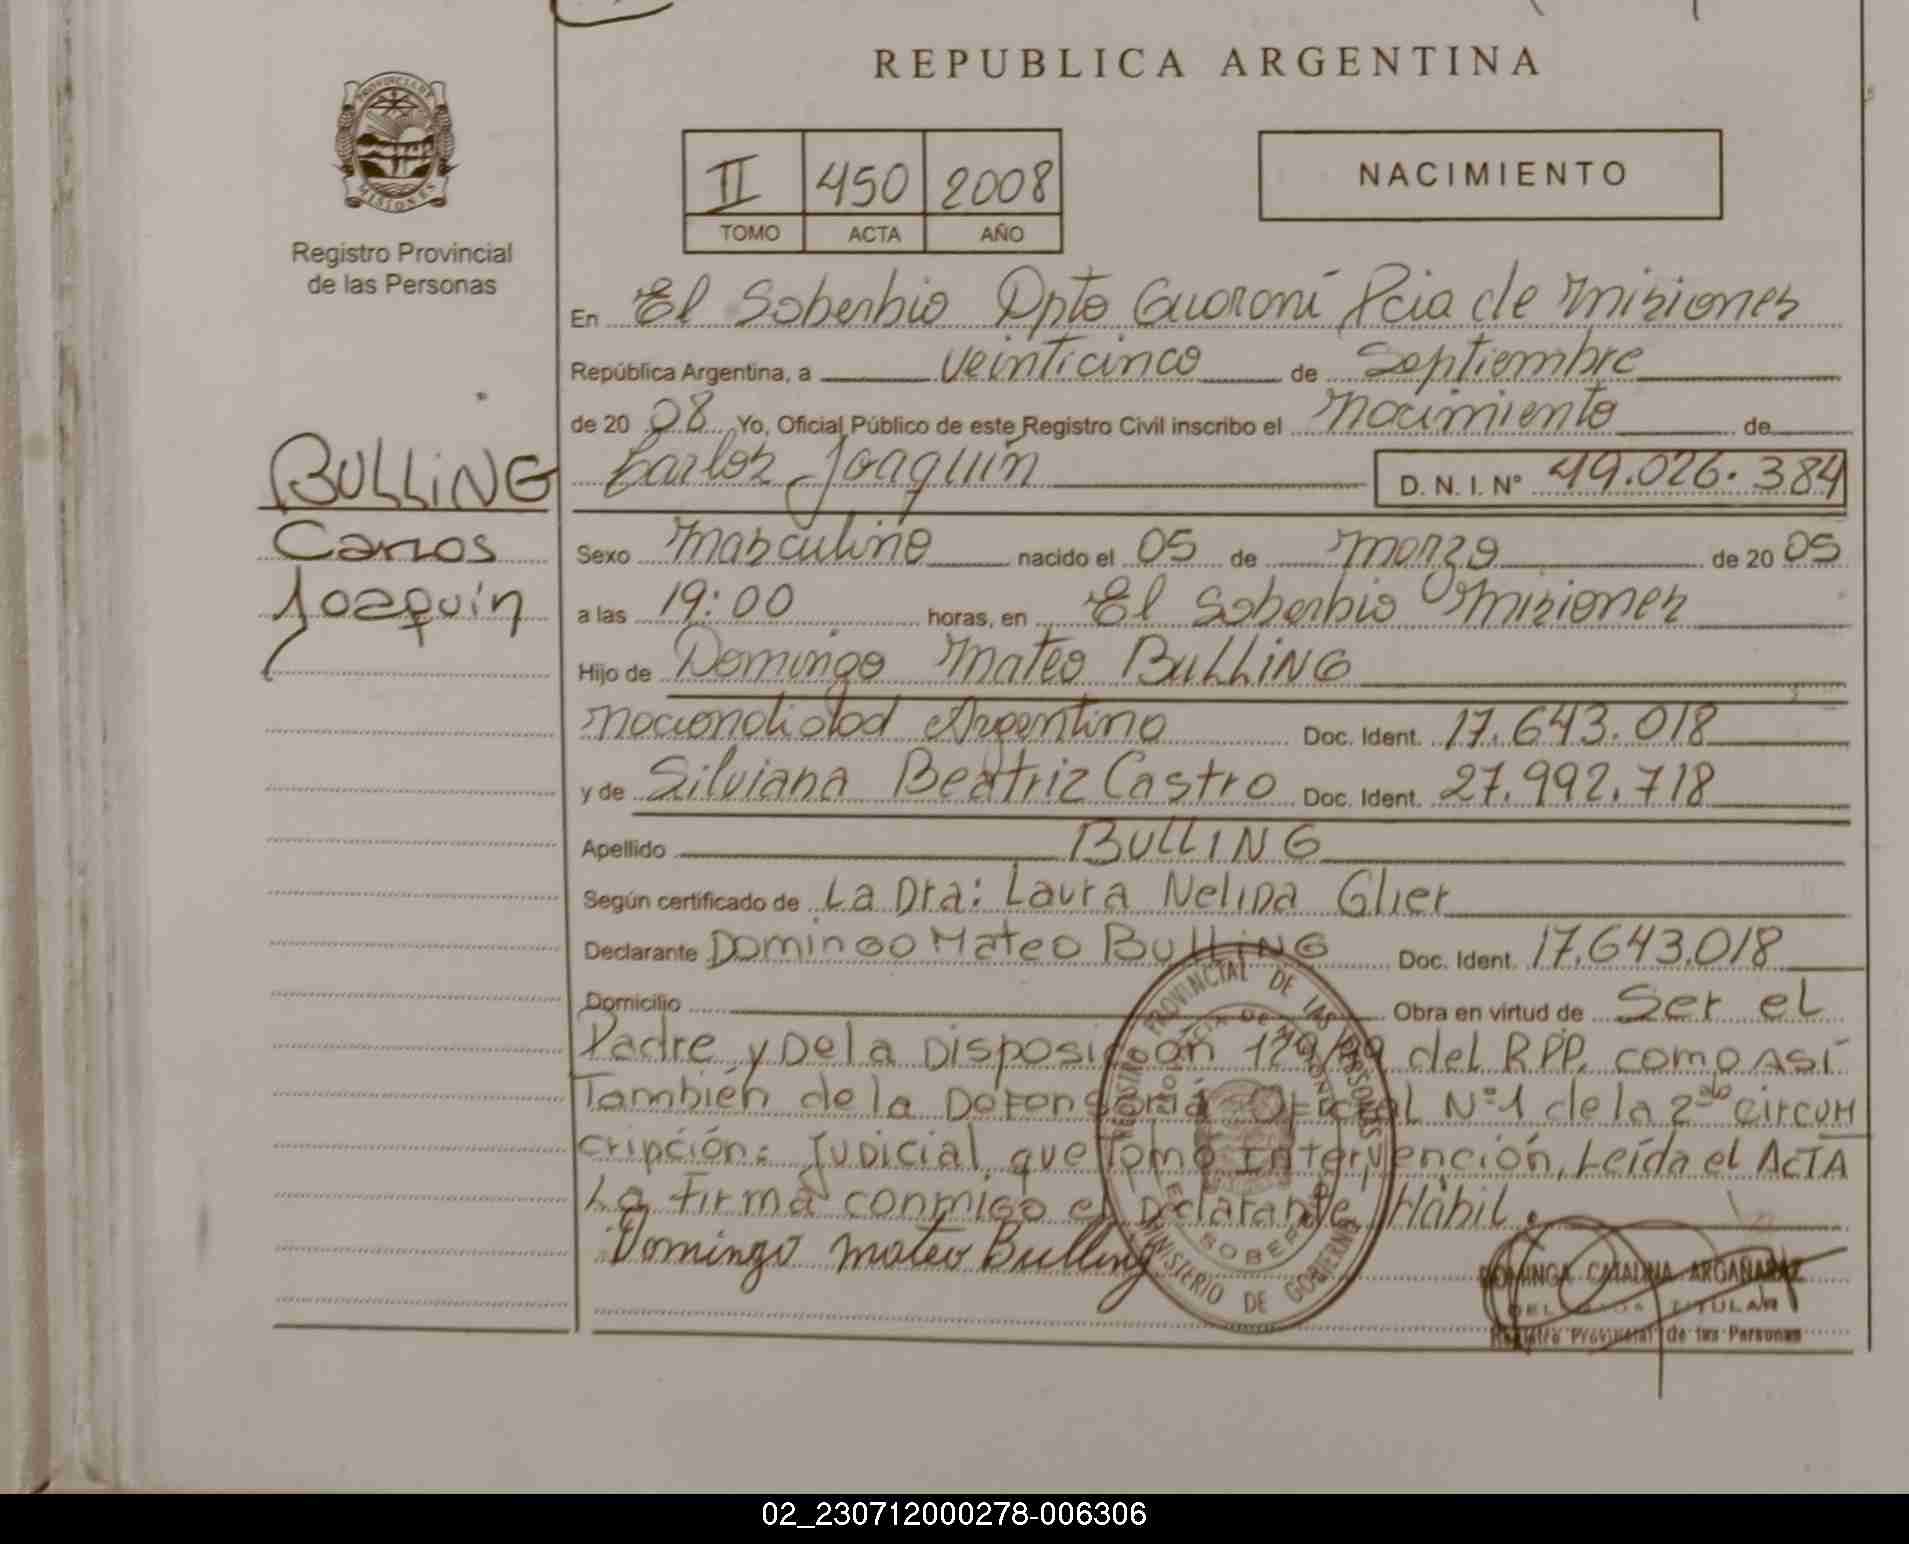 REPUBLICA ARGENTINA
PROVINCIA DE MISIONES
Registro Provincial
de las Personas
II 450 2008
TOMO ACTA AÑO
NACIMIENTO
En El Soberbio Dpto Guaraní Pcia de Misiones
República Argentina, a veinticinco de Septiembre
de 20 08 Yo, Oficial Público de este Registro Civil inscribo el Nacimiento de
BULLiNG
Carlos
Joaquín
Carlos Joaquín D. N. I. N° 49.026.384
Sexo Masculino nacido el 05 de Marzo de 20 05
a las 19:00 horas, en El Soberbio Misiones
Hijo de Domingo Mateo BULLiNG
nacionalidad Argentina Doc. Ident. 17.643.018
y de Silviana Beatriz Castro Doc. Ident. 27.992.718
Apellido BULLING
Según certificado de La Dra: Laura Nelida Glier
Declarante Domingo Mateo BULLING Doc. Ident. 17.643.018
Domicilio Obra en virtud de Ser el
Padre y De la Disposición del RPP. como Así
También de la Defensoría Oficial N°1 de la 2da circun
cripción: Judicial que Tomó Intervención, Leída el ACTA
La Firma conmigo el Declarante Hábil.
Domingo Mateo Bulling
REGISTRO PROVINCIAL DE LAS PERSONAS
MINISTERIO DE GOBIERNO
DOMINGA CATALINA ARGAÑARAZ
DELEGADA TITULAR
Registro Provincial de las Personas
02_230712000278-006306